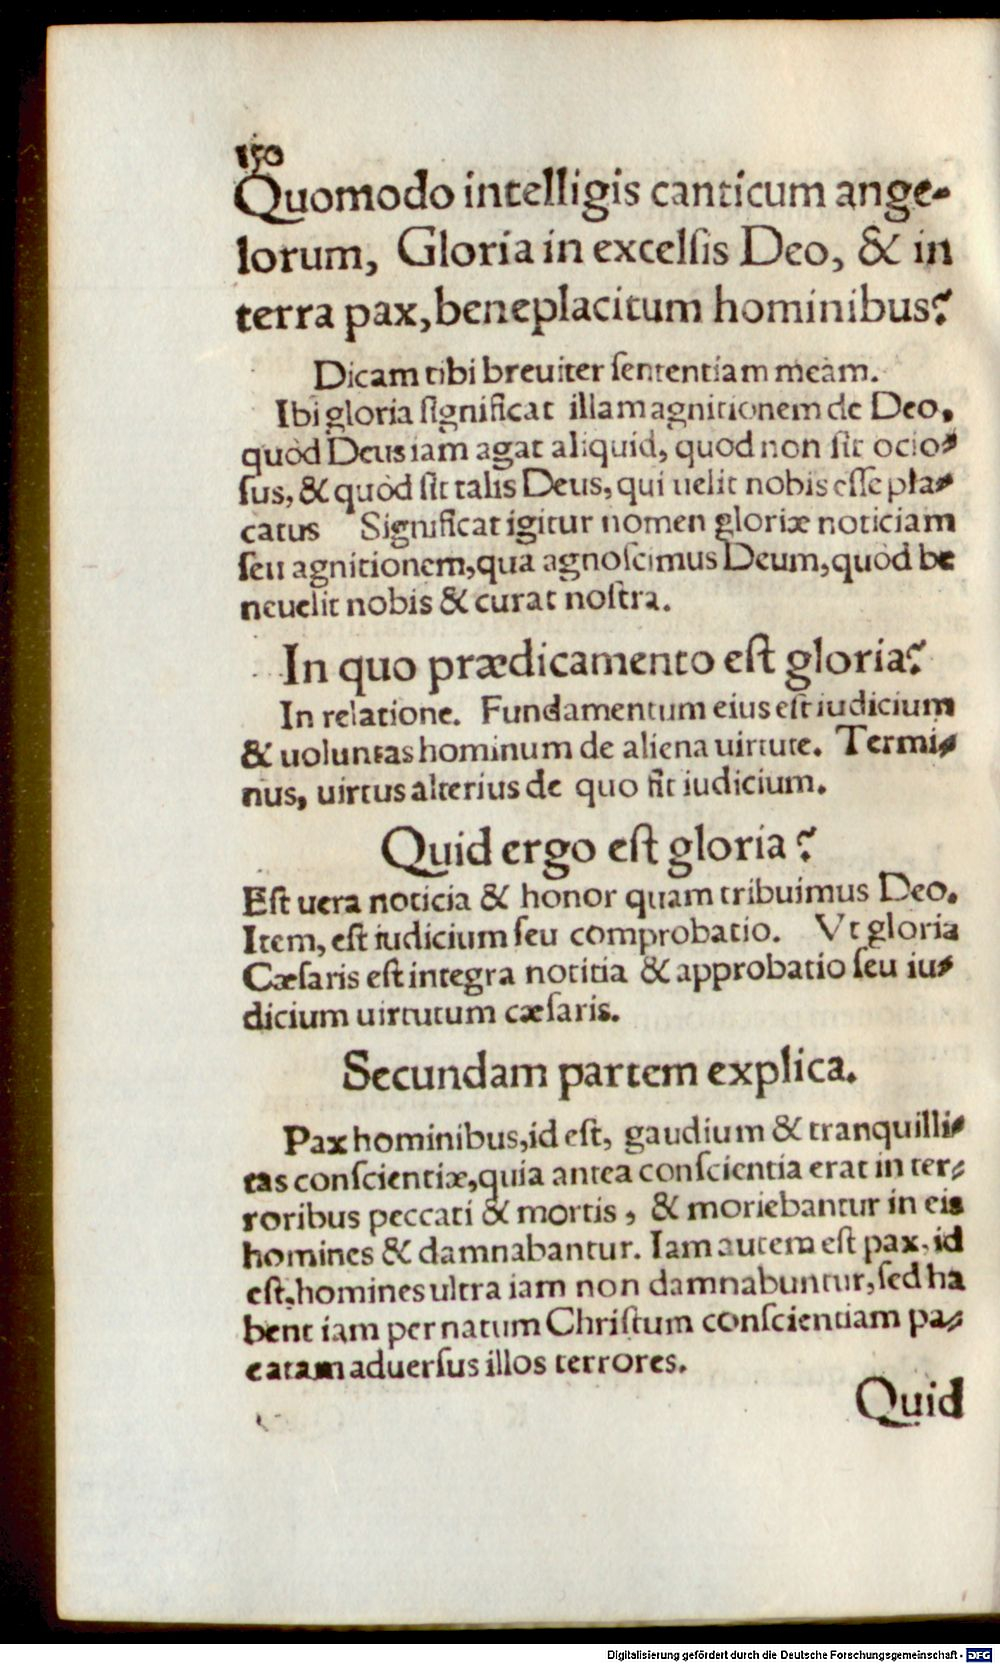 150
Quomodo intelligis canticum ange-
lorum, Gloria in excelsis Deo, & in
terra pax, beneplacitum hominibus?
Dicam tibi breuiter sententiam meam.
Ibi gloria significat illam agnitionem de Deo,
quòd Deus iam agat aliquid, quod non sit ocio-
sus, & quòd sit talis Deus, qui uelit nobis esse pla-
catus Significat igitur nomen gloriæ noticiam
seu agnitionem, qua agnoscimus Deum, quòd be
neuelit nobis & curat nostra.
In quo prædicamento est gloria?
In relatione. Fundamentum eius est iudicium
& uoluntas hominum de aliena uirtute. Termi-
nus, uirtus alterius de quo fit iudicium.
Quid ergo est gloria?
Est uera noticia & honor quam tribuimus Deo.
Item, est iudicium seu comprobatio. Vt gloria
Cæsaris est integra notitia & approbatio seu iu-
dicium uirtutum cæsaris.
Secundam partem explica.
Pax hominibus, id est, gaudium & tranquilli-
tas conscientiæ, quia antea conscientia erat in ter-
roribus peccati & mortis, & moriebantur in eis
homines & damnabantur. Iam autem est pax, id
est, homines ultra iam non damnabuntur, sed ha
bent iam per natum Christum conscientiam pa-
catam aduersus illos terrores.
Quid
Digitalisierung gefördert durch die Deutsche Forschungsgemeinschaft - DFG